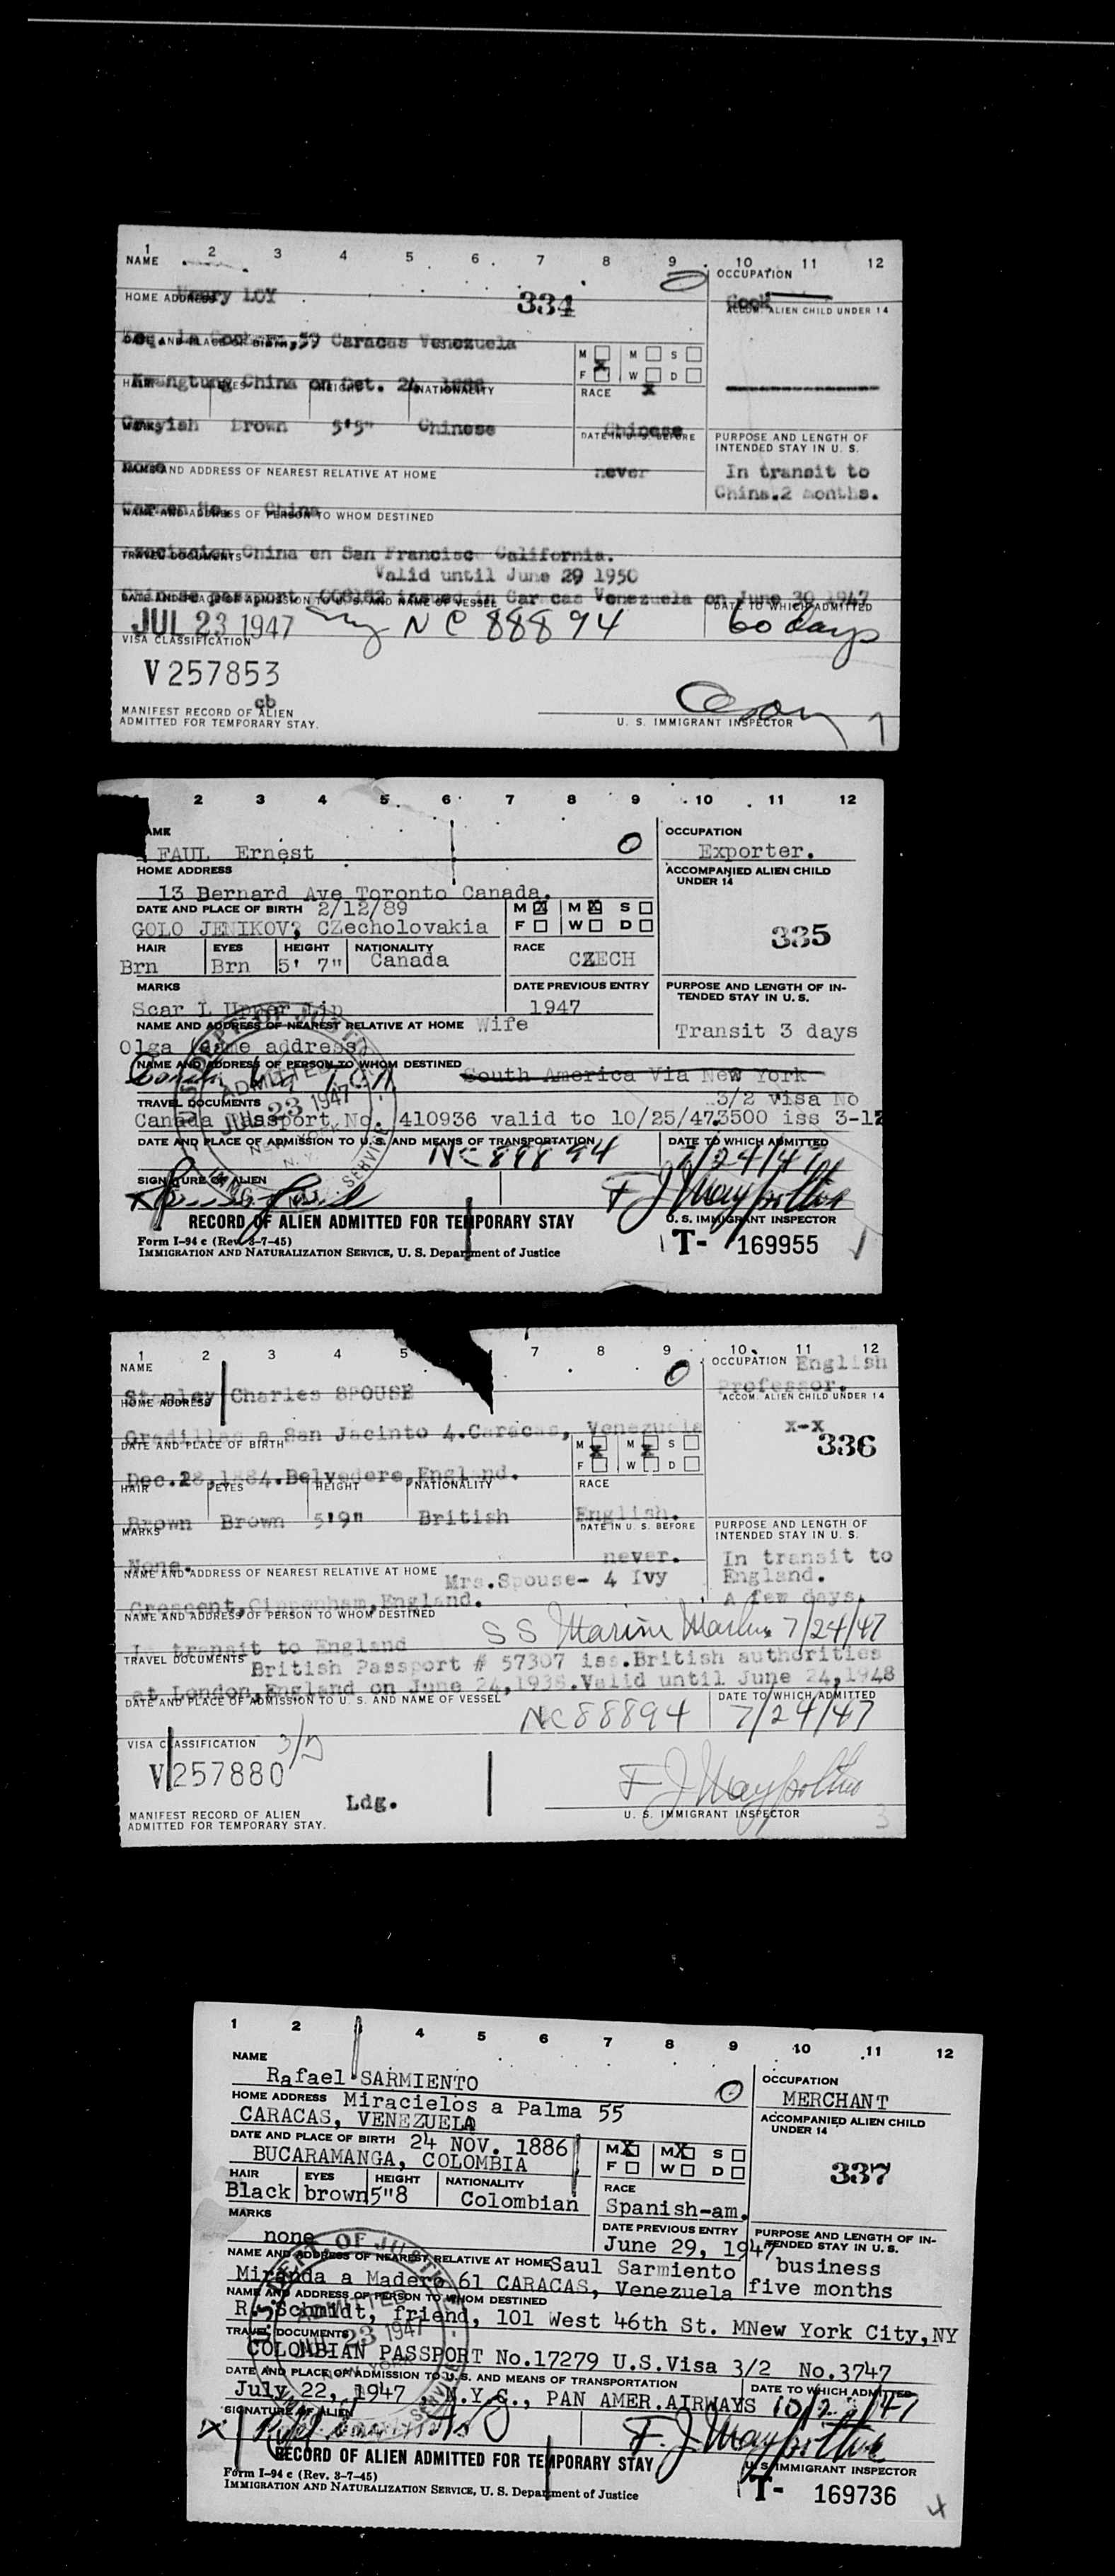 1 2 3 4 5 6 7 8 9 10 11 12
NAME
OCCUPATION
Henry LOY
334
Cook
HOME ADDRESS
ACCOM. ALIEN CHILD UNDER 14
59 Caracas Venezuela
DATE AND PLACE OF BIRTH
M M S
F W D
Kwangtung China on Oct. 24,
HAIR EYES HEIGHT NATIONALITY
RACE
Grayish Brown 5'5" Chinese
Chinese
MARKS
DATE IN U. S. BEFORE
PURPOSE AND LENGTH OF
INTENDED STAY IN U. S.
never
In transit to
China.2 months.
NAME AND ADDRESS OF NEAREST RELATIVE AT HOME
China
NAME AND ADDRESS OF PERSON TO WHOM DESTINED
China en San Francisco California.
TRAVEL DOCUMENTS
Valid until June 29 1950
Chinese passport issued in Caracas Venezuela on June 30 1947
DATE AND PLACE OF ADMISSION TO U. S. AND NAME OF VESSEL
DATE TO WHICH ADMITTED
JUL 23 1947 NY NC 88894 60 days
VISA CLASSIFICATION
V 257853
cb
MANIFEST RECORD OF ALIEN
ADMITTED FOR TEMPORARY STAY.
U. S. IMMIGRANT INSPECTOR
2 3 4 5 6 7 8 9 10 11 12
NAME
OCCUPATION
FAUL Ernest
Exporter.
HOME ADDRESS
ACCOMPANIED ALIEN CHILD
UNDER 14
13 Bernard Ave Toronto Canada.
DATE AND PLACE OF BIRTH 2/12/89
M M S
F W D
GOLO JENIKOV, CZecholovakia
335
HAIR EYES HEIGHT NATIONALITY
RACE
Brn Brn 5' 7" Canada
CZECH
MARKS
DATE PREVIOUS ENTRY
PURPOSE AND LENGTH OF IN-
TENDED STAY IN U. S.
Scar L Upper Lip
1947
NAME AND ADDRESS OF NEAREST RELATIVE AT HOME Wife
Transit 3 days
Olga (same address)
NAME AND ADDRESS OF PERSON TO WHOM DESTINED South America Via New York
TRAVEL DOCUMENTS
3/2 visa No
Canada Passport No. 410936 valid to 10/25/47 3500 iss 3-12
DATE AND PLACE OF ADMISSION TO U. S. AND MEANS OF TRANSPORTATION
DATE TO WHICH ADMITTED
NC 88894 7/24/47
SIGNATURE OF ALIEN
F J Maypother
RECORD OF ALIEN ADMITTED FOR TEMPORARY STAY
U. S. IMMIGRANT INSPECTOR
Form I-94 c (Rev. 3-7-45)
IMMIGRATION AND NATURALIZATION SERVICE, U. S. Department of Justice
T- 169955
ADMITTED
JUL 23 1947
NEW YORK
N. Y.
1 2 3 4 5 7 8 9 10 11 12
NAME
OCCUPATION English
Professor.
Stanley Charles SPOUSE
HOME ADDRESS
ACCOM. ALIEN CHILD UNDER 14
Gradillas a San Jacinto 4.Caracas, Venezuela
x-x
336
DATE AND PLACE OF BIRTH
M M S
F W D
Dec.28,1884.Belvedere,England.
HAIR EYES HEIGHT NATIONALITY
RACE
Brown Brown 5'9" British
English.
MARKS
DATE IN U. S. BEFORE
PURPOSE AND LENGTH OF
INTENDED STAY IN U. S.
None.
never.
In transit to
England.
A few days.
NAME AND ADDRESS OF NEAREST RELATIVE AT HOME Mrs.Spouse- 4 Ivy
Crescent,Cippenham,England.
NAME AND ADDRESS OF PERSON TO WHOM DESTINED
SS Marine Marlin 7/24/47
In transit to England
TRAVEL DOCUMENTS British Passport # 57307 iss.British authorities
at London,England on June 24,1938.Valid until June 24,1948
DATE AND PLACE OF ADMISSION TO U. S. AND NAME OF VESSEL
DATE TO WHICH ADMITTED
NC88894 7/24/47
VISA CLASSIFICATION
V 257880
Ldg.
F J Maypother
MANIFEST RECORD OF ALIEN
ADMITTED FOR TEMPORARY STAY.
U. S. IMMIGRANT INSPECTOR
3
1 2 4 5 6 7 8 9 10 11 12
NAME
OCCUPATION
Rafael SARMIENTO
MERCHANT
HOME ADDRESS Miracielos a Palma 55
ACCOMPANIED ALIEN CHILD
UNDER 14
CARACAS, VENEZUELA
DATE AND PLACE OF BIRTH 24 NOV. 1886
M M S
F W D
BUCARAMANGA, COLOMBIA
337
HAIR EYES HEIGHT NATIONALITY
RACE
Black brown 5"8 Colombian
Spanish-am.
MARKS
DATE PREVIOUS ENTRY
PURPOSE AND LENGTH OF IN-
TENDED STAY IN U. S.
none
June 29, 1947
business
five months
NAME AND ADDRESS OF NEAREST RELATIVE AT HOME Saul Sarmiento
Miranda a Madero 61 CARACAS, Venezuela
NAME AND ADDRESS OF PERSON TO WHOM DESTINED
R. Schmidt, friend, 101 West 46th St. MNew York City,NY
TRAVEL DOCUMENTS
COLOMBIAN PASSPORT No.17279 U.S.Visa 3/2 No.3747
DATE AND PLACE OF ADMISSION TO U. S. AND MEANS OF TRANSPORTATION
DATE TO WHICH ADMITTED
July 22, 1947 , N.Y.C., PAN AMER.AIRWAYS
SIGNATURE OF ALIEN
F. J. Maypother
RECORD OF ALIEN ADMITTED FOR TEMPORARY STAY
U. S. IMMIGRANT INSPECTOR
Form I-94 c (Rev. 3-7-45)
IMMIGRATION AND NATURALIZATION SERVICE, U. S. Department of Justice
T- 169736